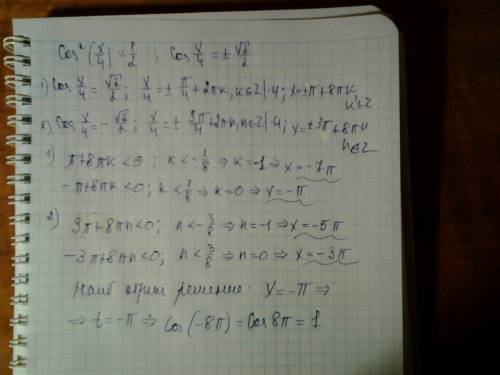 cos²(x/4) = 1/2 ; cos x/4 = ± √2/2
1) cos x/4 = √2/2 ; x/4 = ± π/4 + 2πk, k∈Z |·4; x = ±π + 8πk, k∈Z
2) cos x/4 = - √2/2 ; x/4 = ± 3π/4 + 2πn, n∈Z |·4; x = ±3π + 8πn n∈Z
1) π+8πk<0 ; k < -1/8 ⇒ k=-1 ⇒ x=-7π
-π+8πk<0 ; k < 1/8 ⇒ k=0 ⇒ x=-π
2) 3π+8πn<0 ; n < -3/8 ⇒ n=-1 ⇒ x=-5π
-3π+8πn<0 ; n < 3/8 ⇒ n=0 ⇒ x=-3π
Наиб отриц решение: x=-π ⇒
⇒ t=-π ⇒ cos(-8π) = cos 8π = 1